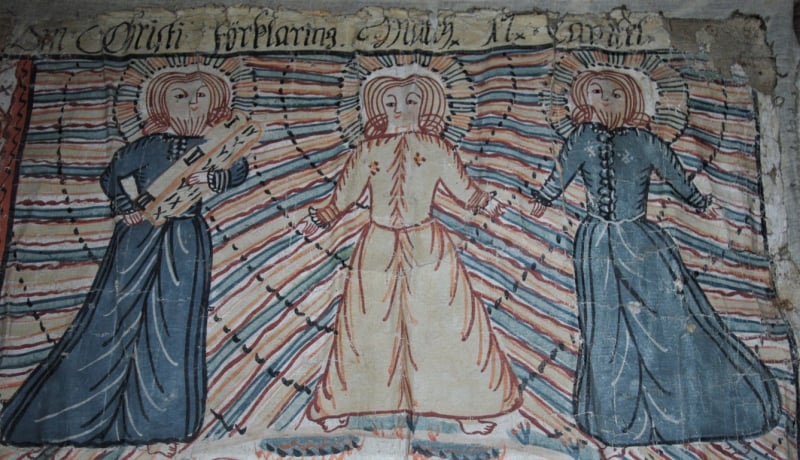 Om Christi förklaring. Math. 17. Capitel.